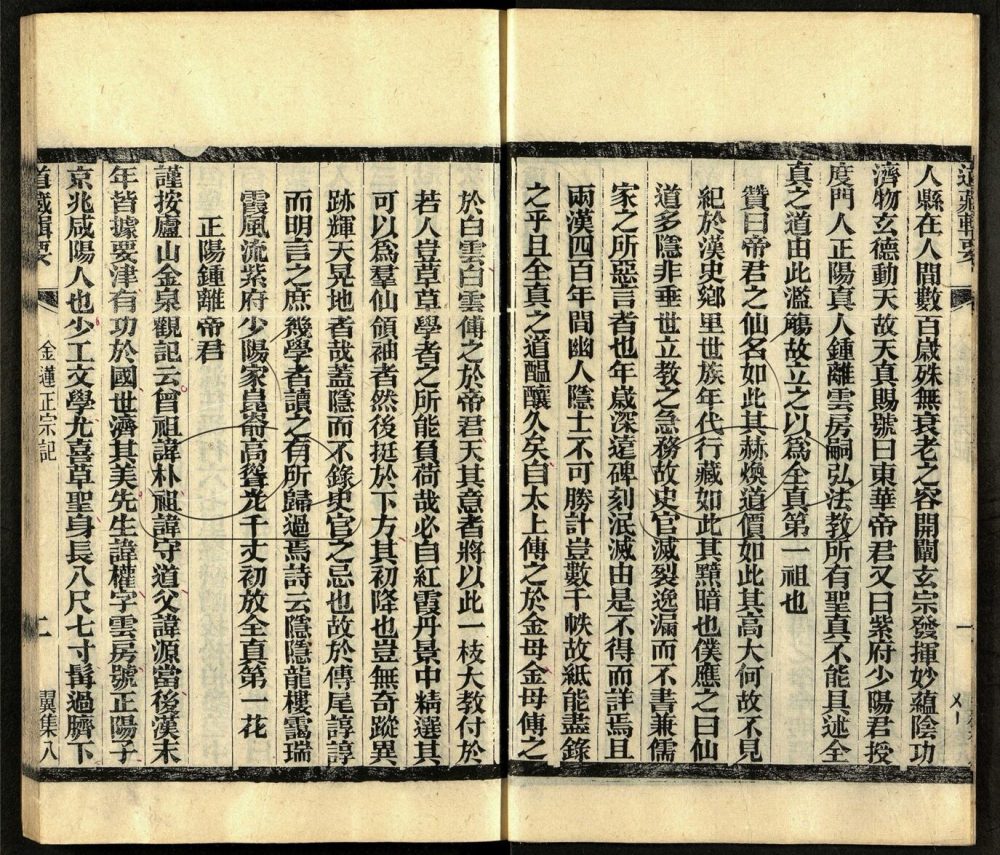 道藏輯要
人縣在人間數百歲殊無衰老之容開闡玄宗發揮妙蘊陰功
濟物玄德動天故天真賜號曰東華帝君又曰紫府少陽君授
度門人正陽真人鍾離雲房嗣弘法教所有聖真不能具述全
真之道由此濫觴故立之以爲全真第一祖也
贊曰帝君之仙名如此其赫煥道價如此其高大何故不見
紀於漢史鄉里世族年代行藏如此其黯暗也僕應之曰仙
道多隱非垂世立教之急務故史官滅裂逸漏而不書兼儒
家之所惡言者也年歲深遠碑刻泯滅由是不得而詳焉且
兩漢四百年間幽人隱士不可勝計豈數千帙故紙能盡錄
之乎且全真之道醖釀久矣自太上傳之於金母金母傳之
於白雲白雲傳之於帝君天其意者將以此一枝大教付於
若人豈草草學者之所能負荷哉必自紅霞丹景中精選其
可以爲羣仙領袖者然後挺於下方其初降也豈無奇蹤異
跡輝天晃地者哉蓋隱而不錄史官之忌也故於傳尾諄諄
而明言之庶幾學者讀之有所歸過焉詩云隱隱龍樓靄瑞
霞風流紫府少陽家崑崙高聳光千丈初放全真第一花
正陽鍾離帝君
謹按廬山金泉觀記云曾祖諱朴祖諱守道父諱源當後漢末
年皆據要津有功於國世濟其美先生諱權字雲房號正陽子
京兆咸陽人也少工文學尤喜草聖身長八尺七寸髯過臍下
道藏輯要 金蓮正宗記 二 翼集八